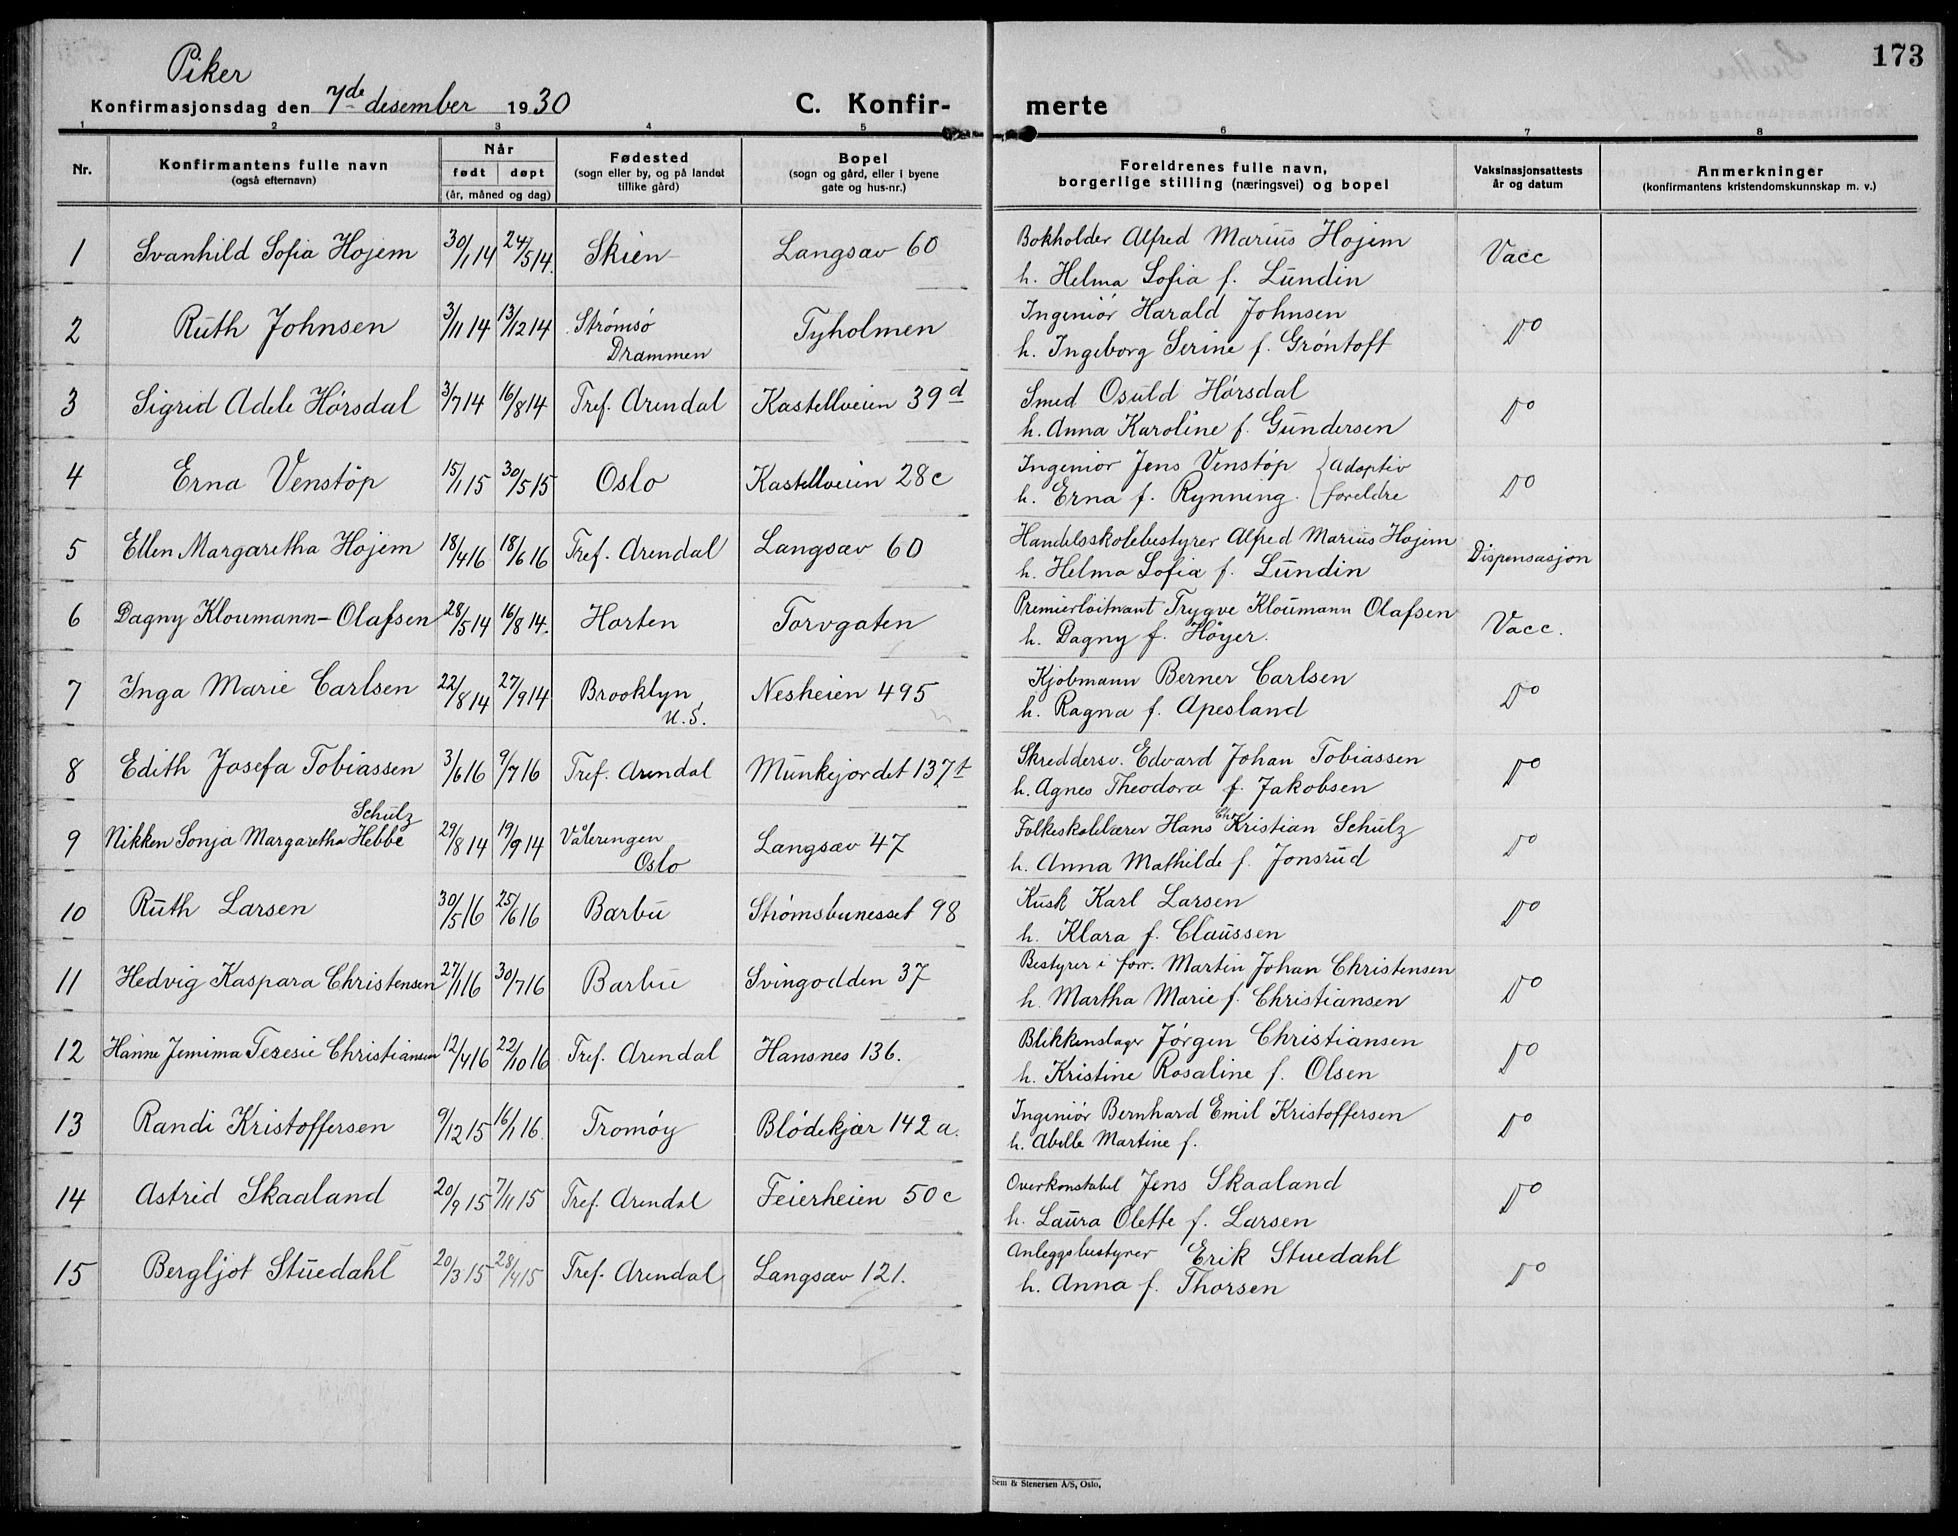 173
Piker
Konfirmasjonsdag den 7de desember 1930 C. Konfir- merte
1 2 3 4 5 6 7 8
Nr. Konfirmantens fulle navn (også efternavn) Når født døpt (år, måned og dag) Fødested (sogn eller by, og på landet tillike gård) Bopel (sogn og gård, eller i byene gate og hus-nr.) Foreldrenes fulle navn, borgerlige stilling (næringsvei) og bopel Vaksinasjonsattests år og datum Anmerkninger (konfirmantens kristendomskunnskap m. v.)
1 Svanhild Sofia Hojem 30/1 14 24/5 14. Skien Langsæv 60 Bokholder Alfred Marius Hojem Vacc
h. Helma Sofia f. Lundin
2 Ruth Johnsen 3/11 14 13/12 14 Strømsø Tyholmen Ingeniør Harald Johnsen Do
Drammen h. Ingeborg Serine f. Grøntoft
3 Sigrid Adele Hørsdal 3/7 14 16/8 14 Tref. Arendal Kastellveien 39d Smed Osuld Hørsdal Do
h. Anna Karoline f. Gundersen
4 Erna Venstøp 15/1 15 30/5 15 Oslo Kastellveien 28c Ingeniør Jens Venstøp { Adoptiv Do
h. Erna f. Rynning. { foreldre
5 Ellen Margaretha Hojem 18/4 16 18/6 16 Tref. Arendal Langsæv 60 Handelsskolebestyrer Alfred Marius Hojem Dispensasjon
h. Helma Sofia f. Lundin
6 Dagny Kloumann-Olafsen 28/5 14 16/8 14. Horten Torvgaten Premierløitnant Trygve Kloumann Olafsen Vacc.
h. Dagny f. Høyer.
7 Inga Marie Carlsen 22/8 14 27/9 14 Brooklyn Nesheien 495 Kjøbmann Berner Carlsen Do
U.S. h. Ragna f. Apesland
8 Edith Josefa Tobiassen 3/6 16 9/7 16 Tref. Arendal Munkejordet 137t Skreddersv. Edvard Johan Tobiassen Do
h. Agnes Theodora f. Jakobsen
Schulz
9 Nikken Sonja Margaretha Hebbe 29/8 14 19/9 14 Vålerengen Langsæv 47 Folkeskolelærer Hans Chr Kristian Schulz Do
Oslo h. Anna Mathilde f. Jonsrud
10 Ruth Larsen 30/5 16 25/6 16 Barbu Strømsbunesset 98 Kusk Karl Larsen Do
h. Klara f. Claussen
11 Hedvig Kaspara Christensen 27/1 16 30/7 16 Barbu Svingodden 37 Bestyrer i forr. Martin Johan Christensen Do
h. Martha Marie f. Christiansen
12 Hanne Jemima Teresie Christiansen 12/4 16 22/10 16 Tref. Arendal Hansnes 136. Blikkenslager Jørgen Christiansen Do
h. Kristine Rosaline f. Olsen
13 Randi Kristoffersen 9/12 15 16/1 16. Tromøy Blødekjær 142a. Ingeniør Bernhard Emil Kristoffersen Do
h. Abelle Martine f.
14 Astrid Skaaland 20/9 15 7/11 15 Tref. Arendal Feierheien 50c Overkonstabel Jens Skaaland Do
h. Laura Olette f. Larsen
15 Bergljot Stuedahl 20/3 15 28/4 15 Tref. Arendal Langsæv 121. Anleggsbestyrer Erik Stuedahl Do
h. Anna f. Thorsen
Sem & Stenersen A/S, Oslo.